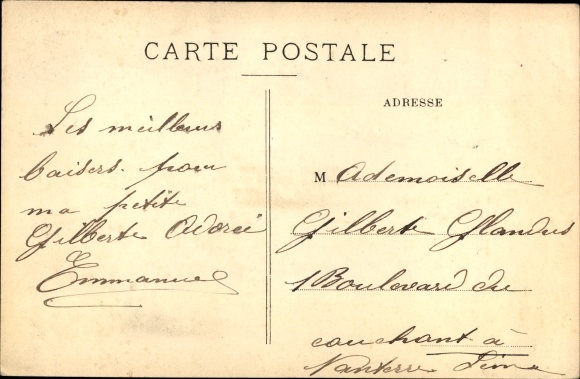 CARTE POSTALE
ADRESSE
Les meilleurs
baisers pour
ma petite
Gilberte Adorée
Emmanuel
Mademoiselle
Gilberte Glandus
1 Boulevard du
couchant à
Nanterre Seine